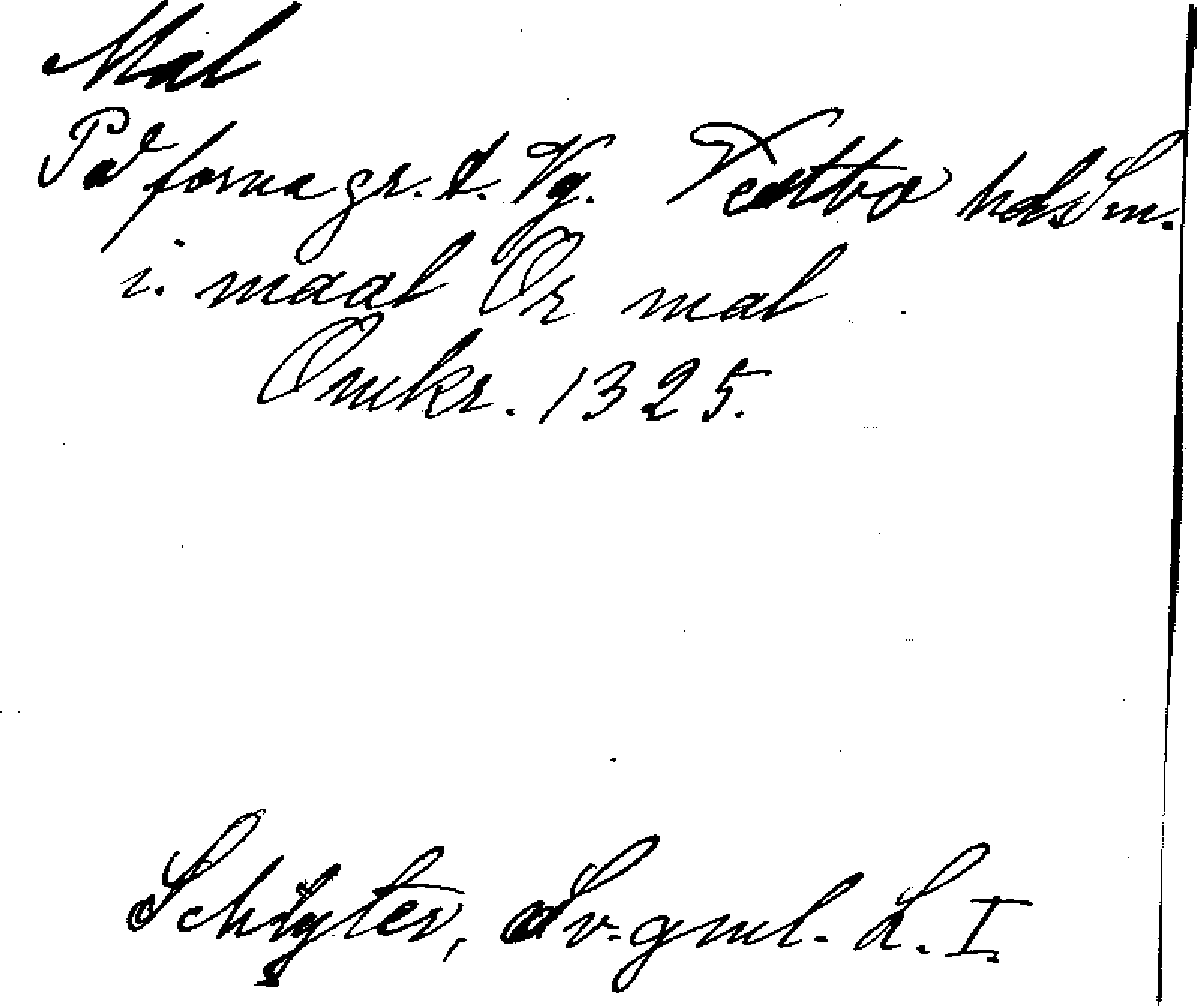 Mal
På forna gr. t. Vg. Västbo hds Sm.
i. maal Or mal
Omkr. 1325.
Schlyter, Sv. gml. L. I.